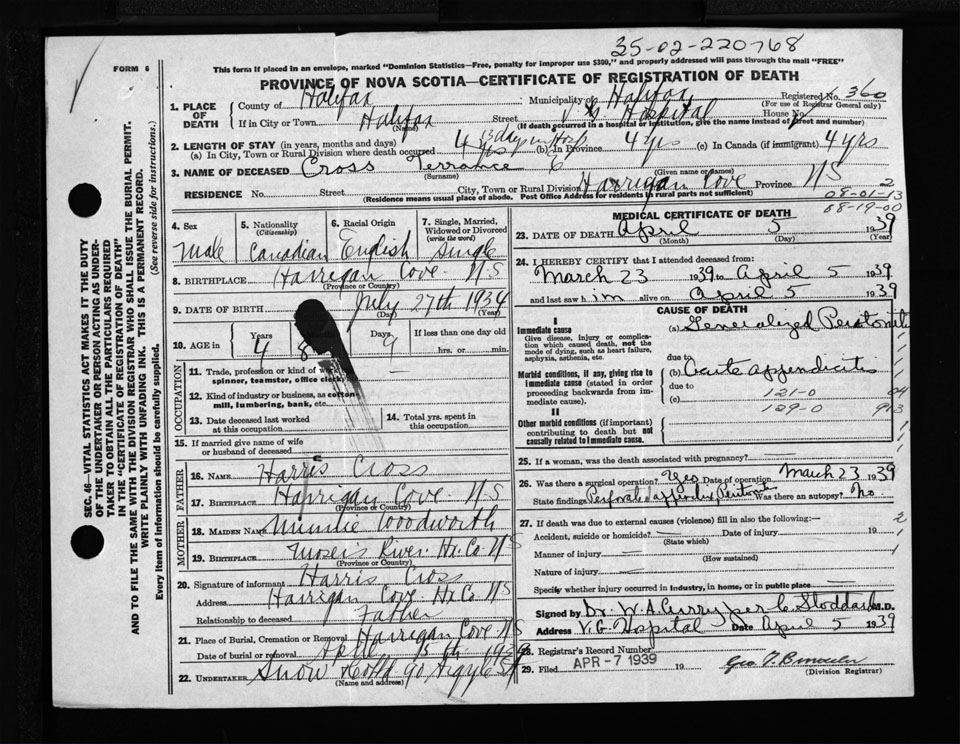 35-02-220768
FORM 6
This form if placed in an envelope, marked "Dominion Statistics—Free, penalty for improper use $300," and properly addressed will pass through the mail "FREE"
PROVINCE OF NOVA SCOTIA—CERTIFICATE OF REGISTRATION OF DEATH
1. PLACE OF DEATH
County of Halifax Municipality of Halifax Registered No. 360
(For use of Registrar General only)
If in City or Town Halifax Street V G Hospital House No.
(Name) (If death occurred in a hospital or institution, give the name instead of street and number)
2. LENGTH OF STAY (in years, months and days)
(a) In City, Town or Rural Division where death occurred 13 days in Hosp (b) In Province 4 yrs (c) In Canada (if immigrant) 4 yrs
3. NAME OF DECEASED Cross Terrance C
(Surname) (Given name or names)
RESIDENCE No. Street City, Town or Rural Division Harrigan Cove Province N S
(Residence means usual place of abode. Post Office Address for residents of rural parts not sufficient)
08-01-13
2
08-19-00
4. Sex Male
5. Nationality (Citizenship) Canadian
6. Racial Origin English
7. Single, Married, Widowed or Divorced (write the word) Single
8. BIRTHPLACE Harrigan Cove N-S
(Province or Country)
9. DATE OF BIRTH July 27th 1934
(Day) (Year)
10. AGE in Years 4 8 Days 9 If less than one day old
hrs. or min.
OCCUPATION
11. Trade, profession or kind of work as spinner, teamster, office clerk
12. Kind of industry or business, as cotton mill, lumbering, bank, etc.
13. Date deceased last worked at this occupation
14. Total yrs. spent in this occupation
15. If married give name of wife or husband of deceased
FATHER
16. NAME Harris Cross
17. BIRTHPLACE Harrigan Cove N-S
(Province or Country)
MOTHER
18. MAIDEN NAME Minnie Woodworth
19. BIRTHPLACE Mosers River Hx. Co. N S
(Province or Country)
20. Signature of informant Harris Cross
Address Harrigan Cove Hx Co N S
Relationship to deceased Father
21. Place of Burial, Cremation or Removal Harrigan Cove N S
Date of burial or removal April 1939
22. UNDERTAKER Snow 90 Argyle St
(Name and address)
MEDICAL CERTIFICATE OF DEATH
23. DATE OF DEATH April 5 1939
(Month) (Day) (Year)
24. I HEREBY CERTIFY that I attended deceased from:
March 23 1939 to April 5 1939
and last saw him alive on April 5 1939
CAUSE OF DEATH
I
Immediate cause
Give disease, injury or complication which caused death, not the mode of dying, such as heart failure, asphyxia, asthenia, etc.
(a) Generalized Peritonitis
due to
Morbid conditions, if any, giving rise to immediate cause (stated in order proceeding backwards from immediate cause).
(b) Acute appendicitis
due to
(c) 121-0 04
129-0 913
II
Other morbid conditions (if important) contributing to death but not causally related to immediate cause.
25. If a woman, was the death associated with pregnancy?
26. Was there a surgical operation? Yes Date of operation March 23 1939
State findings Perforated appendix Peritonitis Was there an autopsy? No
27. If death was due to external causes (violence) fill in also the following:—
Accident, suicide or homicide? Date of injury 19
(State which)
Manner of injury
(How sustained)
Nature of injury
Specify whether injury occurred in industry, in home, or in public place
Signed by Dr. W. A. Curry per C. Stoddard M.D.
Address V. G. Hospital Date April 5 1939
28. Registrar's Record Number
29. Filed APR - 7 1939 19
(Division Registrar)
SEC. 46—VITAL STATISTICS ACT MAKES IT THE DUTY
OF THE UNDERTAKER OR PERSON ACTING AS UNDERTAKER TO OBTAIN ALL THE PARTICULARS REQUIRED
IN THE "CERTIFICATE OF REGISTRATION OF DEATH"
AND TO FILE THE SAME WITH THE DIVISION REGISTRAR WHO SHALL ISSUE THE BURIAL PERMIT.
WRITE PLAINLY WITH UNFADING INK. THIS IS A PERMANENT RECORD.
Every item of information should be carefully supplied. (See reverse side for instructions.)